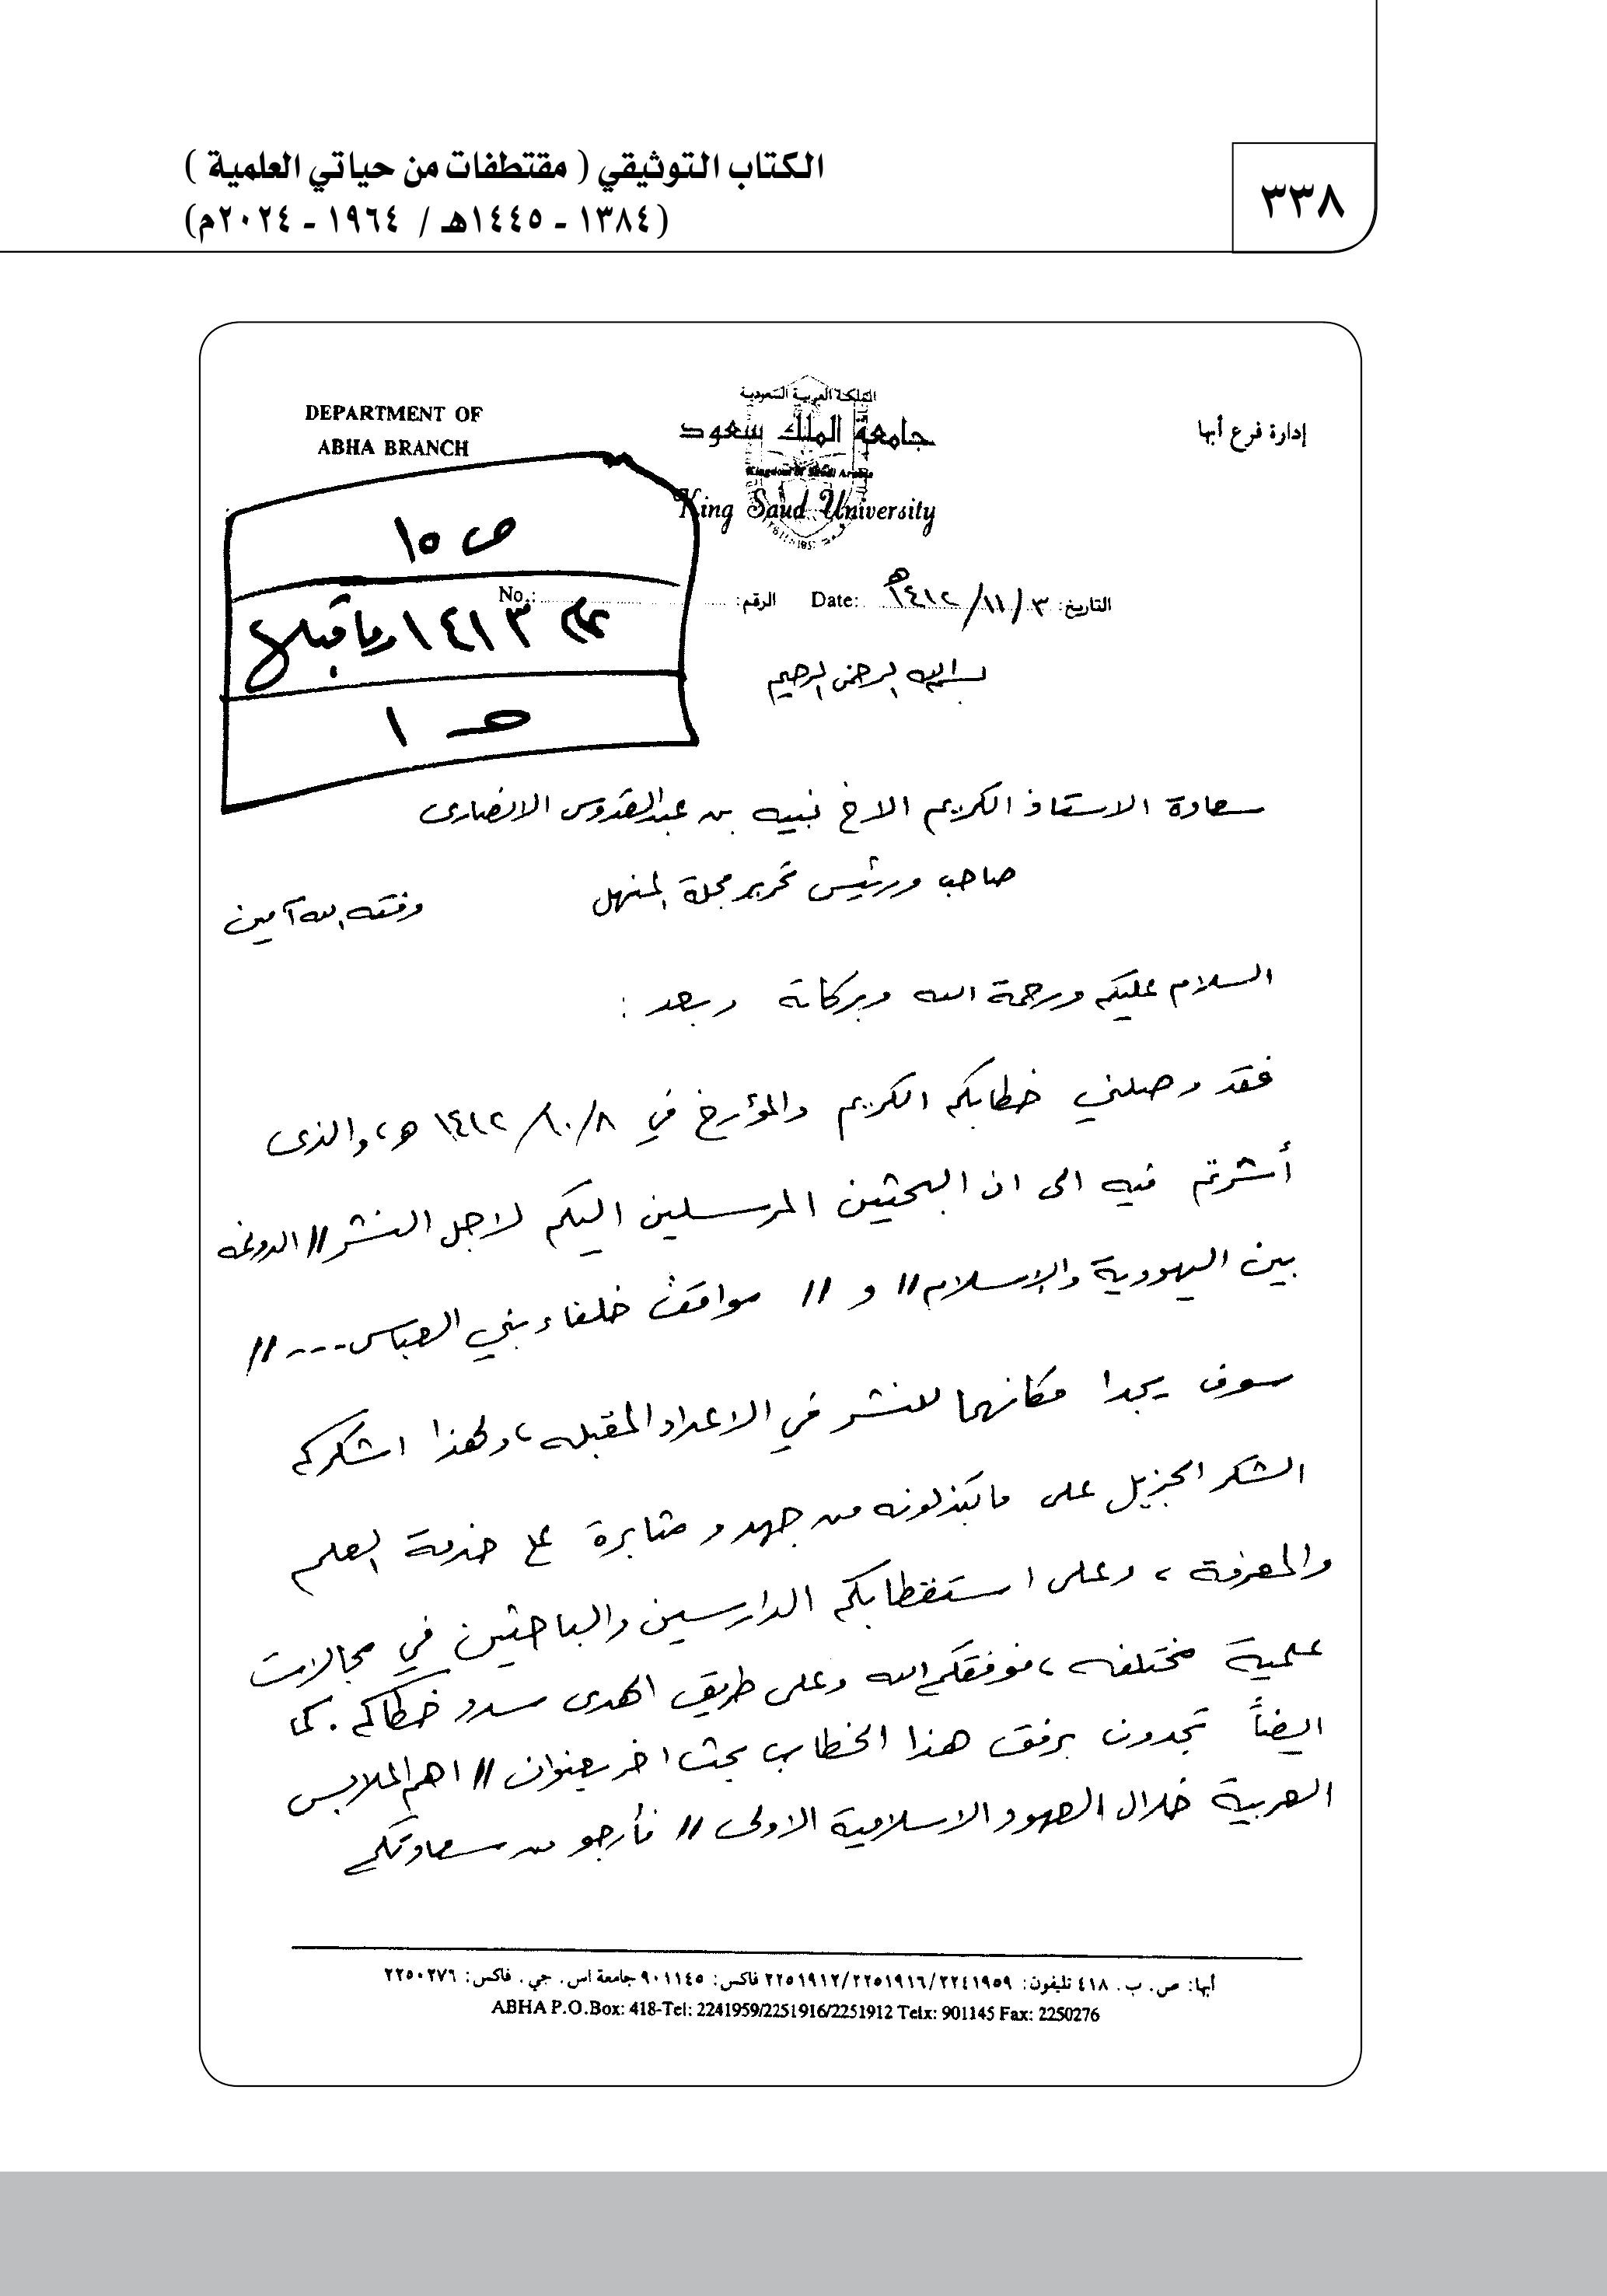 ٣٣٨
الكتاب التوثيقي ( مقتطفات من حياتي العلمية )
(١٣٨٤ ـ ١٤٤٥هـ / ١٩٦٤ ـ ٢٠٢٤م)
إدارة فرع أبها
المملكة العربية السعودية
جامعة الملك سعود
Kingdom of Saudi Arabia
King Saud University
DEPARTMENT OF
ABHA BRANCH
ص ١٥
عام ١٤١٣ وما قبلها
صـ ١
التاريخ: ٣ / ١١ / ١٤١٢هـ Date: الرقم: No.:
بسم الله الرحمن الرحيم
سعادة الاستاذ الكريم الاخ نبيه بن عبدالقدوس الانصارى
صاحب ورئيس تحرير مجلة المنهل
وفقه الله آمين
السلام عليكم ورحمة الله وبركاته وبعد :
فقد وصلني خطابكم الكريم والمؤرخ في ٨/ ١٠/ ١٤١٢ هـ، والذى
أشرتم فيه الى ان البحثين المرسلين اليكم لاجل النشر //
بين اليهودية والإسلام // و // مواقف خلفاء بني العباس --- //
سوف يجدا مكانهما للنشر في الاعداد المقبله، ولهذا اشكركم
الشكر الجزيل على ماتبذلونه من جهد و مثابرة على خدمة العلم
والمعرفة ، وعلى استقطابكم الدارسين والباحثين في مجالات
علمية مختلفه ، فوفقكم الله وعلى طريق الهدى سدد خطاكم . كما
ايضاً تجدون برفق هذا الخطاب بحث اخر بعنوان // اهم الملابس
العربية خلال العهود الاسلامية الاولى // فأرجو من سعادتكم
أبها: ص. ب. ٤١٨ تليفون: ٢٢٤١٩٥٩/٢٢٥١٩١٦/٢٢٥١٩١٢ فاكس: ٩٠١١٤٥ جامعة اس. جي. فاكس: ٢٢٥٠٢٧٦
ABHA P.O.Box: 418-Tel: 2241959/2251916/2251912 Telx: 901145 Fax: 2250276